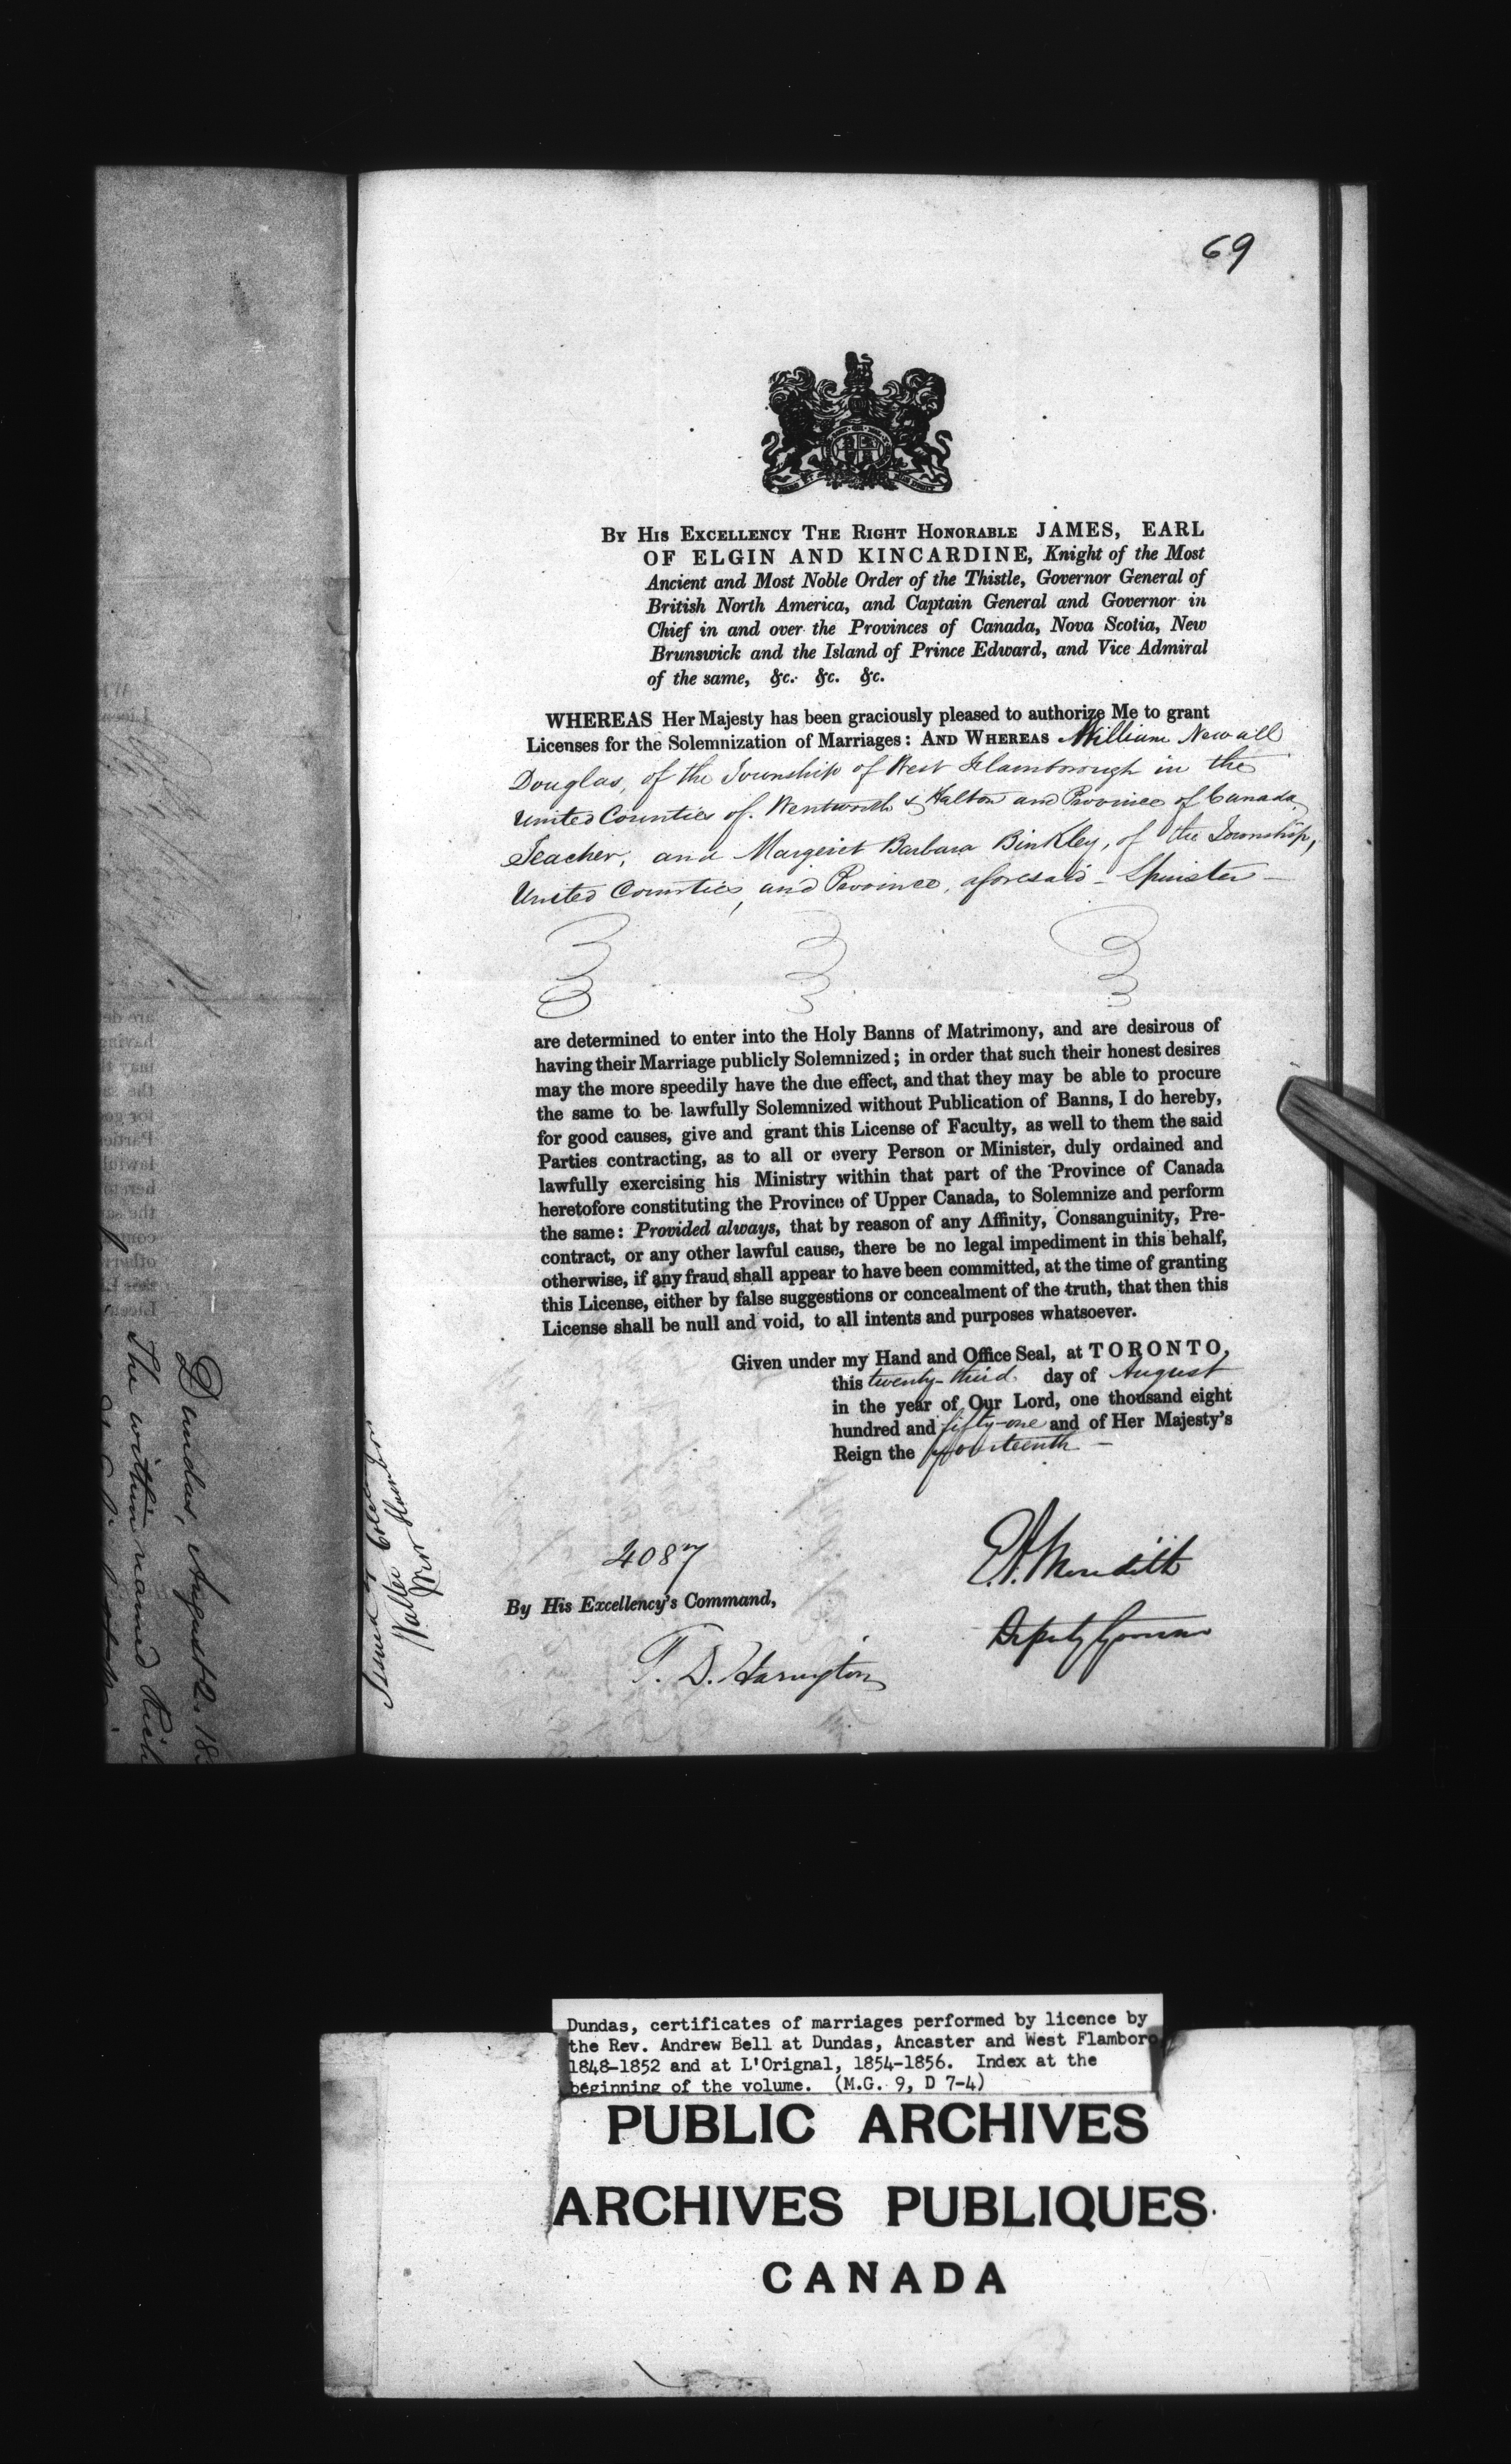 69
By His Excellency The Right Honorable JAMES, EARL
OF ELGIN AND KINCARDINE, Knight of the Most
Ancient and Most Noble Order of the Thistle, Governor General of
British North America, and Captain General and Governor in
Chief in and over the Provinces of Canada, Nova Scotia, New
Brunswick and the Island of Prince Edward, and Vice Admiral
of the same, &c. &c. &c.
WHEREAS Her Majesty has been graciously pleased to authorize Me to grant
Licenses for the Solemnization of Marriages: AND WHEREAS William Newall
Douglas, of the Township of West Flamborough in the
United Counties of Wentworth & Halton and Province of Canada,
Teacher, and Margeret Barbara Binkley, of the Township,
United Counties, and Province, aforesaid - Spinster -
are determined to enter into the Holy Banns of Matrimony, and are desirous of
having their Marriage publicly Solemnized; in order that such their honest desires
may the more speedily have the due effect, and that they may be able to procure
the same to be lawfully Solemnized without Publication of Banns, I do hereby,
for good causes, give and grant this License of Faculty, as well to them the said
Parties contracting, as to all or every Person or Minister, duly ordained and
lawfully exercising his Ministry within that part of the Province of Canada
heretofore constituting the Province of Upper Canada, to Solemnize and perform
the same: Provided always, that by reason of any Affinity, Consanguinity, Pre-
contract, or any other lawful cause, there be no legal impediment in this behalf,
otherwise, if any fraud shall appear to have been committed, at the time of granting
this License, either by false suggestions or concealment of the truth, that then this
License shall be null and void, to all intents and purposes whatsoever.
Given under my Hand and Office Seal, at TORONTO,
this twenty-third day of August
in the year of Our Lord, one thousand eight
hundred and fifty-one and of Her Majesty's
Reign the fourteenth -
4087
By His Excellency's Command,
T. D. Harington
E.A. Meredith
Deputy Governor
Dundas, August 2. 18
The within named Rich
Dundas, certificates of marriages performed by licence by
the Rev. Andrew Bell at Dundas, Ancaster and West Flamboro
1848-1852 and at L'Orignal, 1854-1856. Index at the
beginning of the volume. (M.G. 9, D 7-4)
PUBLIC ARCHIVES
ARCHIVES PUBLIQUES
CANADA